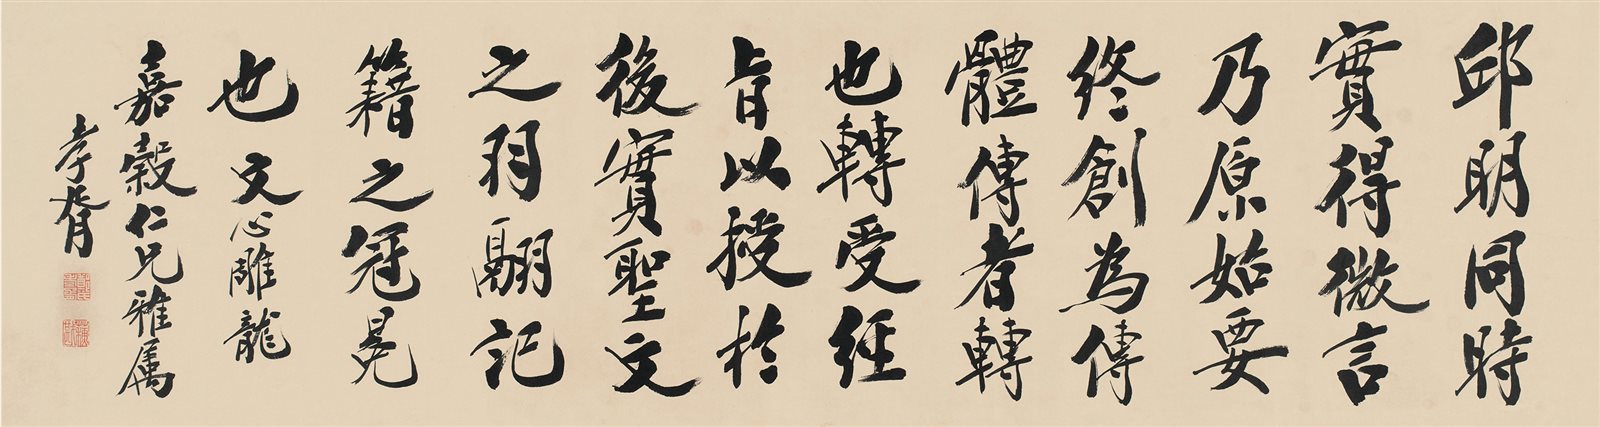 邱明同時
實得微言
乃原始要
終創為傳
體傳者轉
也轉受經
旨以授於
後實聖文
之羽翮記
籍之冠冕
也文心雕龍
嘉穀仁兄雅屬
孝胥